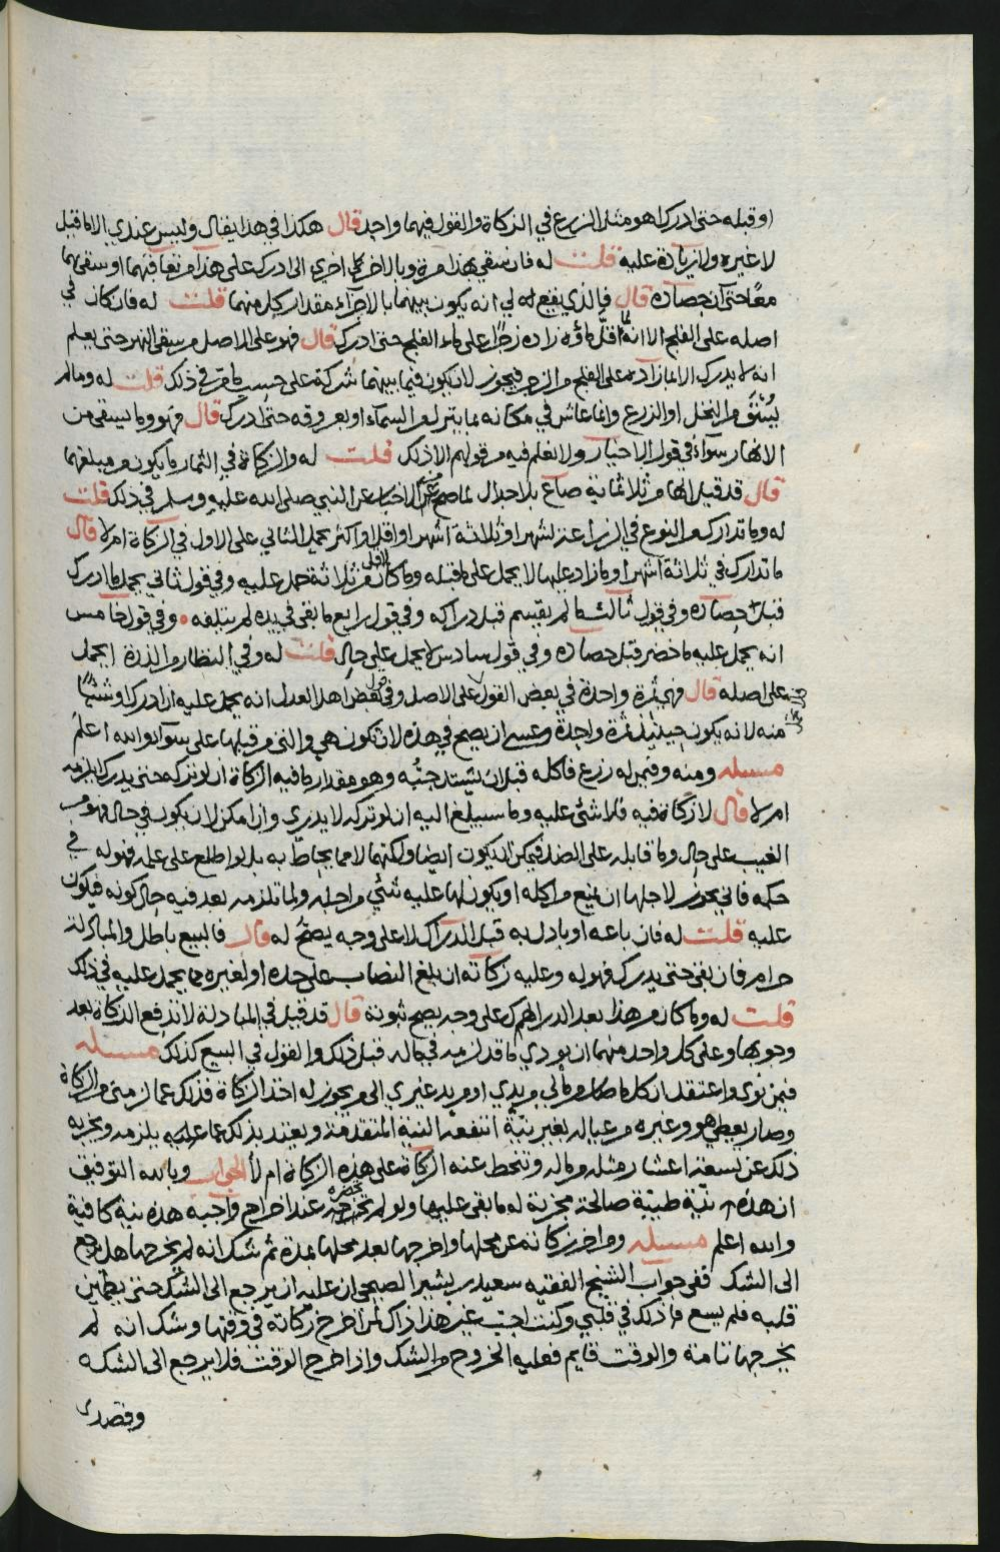 او قبله حتى ادرك اهو مثل الزرع في الزكاة والقول فيهما واحد قال هكذا في هذا يقال وليس عندي الا ما قيل
لا غيره ولا زيادة عليه قلت له فان سقي بهذا مرة وبالاخر اخرى الى ادرك على هذا من تعاقبهما او سقي بهما
معًا حتى آن حصاده قال فالذي يقع لي انه يكون بينهما بالاجزاء مقدار كل منهما قلت له فان كان في
اصله على الفلج الا انه اقل ماؤه زاده زجرا على ماء الفلج حتى ادرك قال فهو على الاصل من سقي النهر حتى يعلم
انه لا يدرك الا بما زاده على الفلج من الزجر فيجوز لان يكون فيما بينهما شركة على حسب ما مر في ذلك قلت له وما لم
يسق من النخل او الزرع وانما عاش في مكانه بما ينزل من السماء او بعروقه حتى ادرك قال فهو وما يسقى من
الانهار سواء في قول الاخيار ولا نعلم فيه من قولهم الا ذلك قلت له والزكاة في الثمار ما يكون من مبلغها
قال قد قيل انها من ثلاثماية صاع بلا جدال لما صح من الاخبار عن النبي صلى الله عليه وسلم في ذلك قلت
له وما تدارك من النوع في الزراعة لشهر او ثلاثة اشهر او اقل او اكثر يحمل الثاني على الاول في الزكاة ام لا قال
ما تدارك في ثلاثة اشهر او ما زاد عليها لا يحمل على ما قبله وما كان لاقل من ثلاثة حمل عليه وفي قول ثاني يحمل ما ادرك
قبل حصاده وفي قول ثالث ما لم يقسم قبل دراكه وفي قول رابع ما بقي في يده لم يتلفه وفي قول خامس
انه يحمل عليه ما حضر قبل حصاده وفي قول سادس لا يحمل على حال قلت له وفي النظار من الذرة ايحمل
على اصله قال فهي ثمرة واحدة في بعض القول على الاصل وفي قول بعض اهل العدل انه يحمل عليه ان ادرك او شئ
منه لانه يكون حينئذ ثمرة واحدة وعسى ان يصح في هذه لان تكون هي والتي من قبلها على سواء والله اعلم
مسئله ومنه وفيمن له زرع فاكله قبل ان يشتد حبه وهو مقدار ما فيه الزكاة ان لو تركه حتى يدرك ايلزمه
ام لا قال لا زكاة فيه فلا شئ عليه وما سيبلغ اليه ان لو تركه لا يدري وان امكن لان يكون في حال فهو من
الغيب على حال وما قابله على الضد فيمكن ان يكون ايضا ولكنهما لا مما يحاط به بل لو اطلع على علمه فهو له في
حكمه فاني يجوز لاجلها ان يمنع من اكله او يكون لها عليه شئ من اجله ولما تلزمه بعد فيه حال كونه فيكون
عليه قلت له فان باعه او بادل به قبل الدراك لا على وجه يصح له قال فالبيع باطل والمبادلة
حرام فان بقي حتى يدرك فهو له وعليه زكاته ان بلغ النصاب على حده او لغيره مما يحمل عليه في ذلك
قلت له وما كان من هذا بعد الدراك لهم على وجه يصح ثبوته قال قد قيل في المبادلة لان تدفع الزكاة بعد
وجوبها وعلى كل واحد منهما ان يودي ما قد لزمه في ماله قبل ذلك والقول في البيع كذلك مسئله
فيمن نوى واعتقد ان كل ما صار من مالي من يدي او من يد غيري الى من يجوز له اخذ الزكاة فذلك عما لزمني من الزكاة
وصار يعطي هو وغيره من عياله بغير نية انتفعه النية المتقدمة ويعتد بذلك عما عليه يلزمه ويجزيه
ذلك عن تسعة اعشار مثله من ماله وتنحط عنه الزكاة على هذه الزكاة ام لا الجواب وبالله التوفيق
ان هذه نية طيبة صالحة مجزية له ما بقي عليها ولو لم تحضره نية عند اخراج واجبه هذه نية كافية
والله اعلم مسئله ومن اخر زكاته عن محلها واخرجها بعد محلها بمدة ثم شك انه لم يخرجها هل يرجع
الى الشك ففي جواب الشيخ الفقيه سعيد بن بشير الصبحي ان عليه ان يرجع الى الشك حتى يطمئن
قلبه فلم يسع ذلك في قلبي وكنت اجبت غير هذا ذاك لمن اخرج زكاته في وقتها وشك انه لم
يخرجها تامة والوقت قايم فعليه الخروج من الشك واذا خرج الوقت فلا يرجع الى الشك
وقصدي